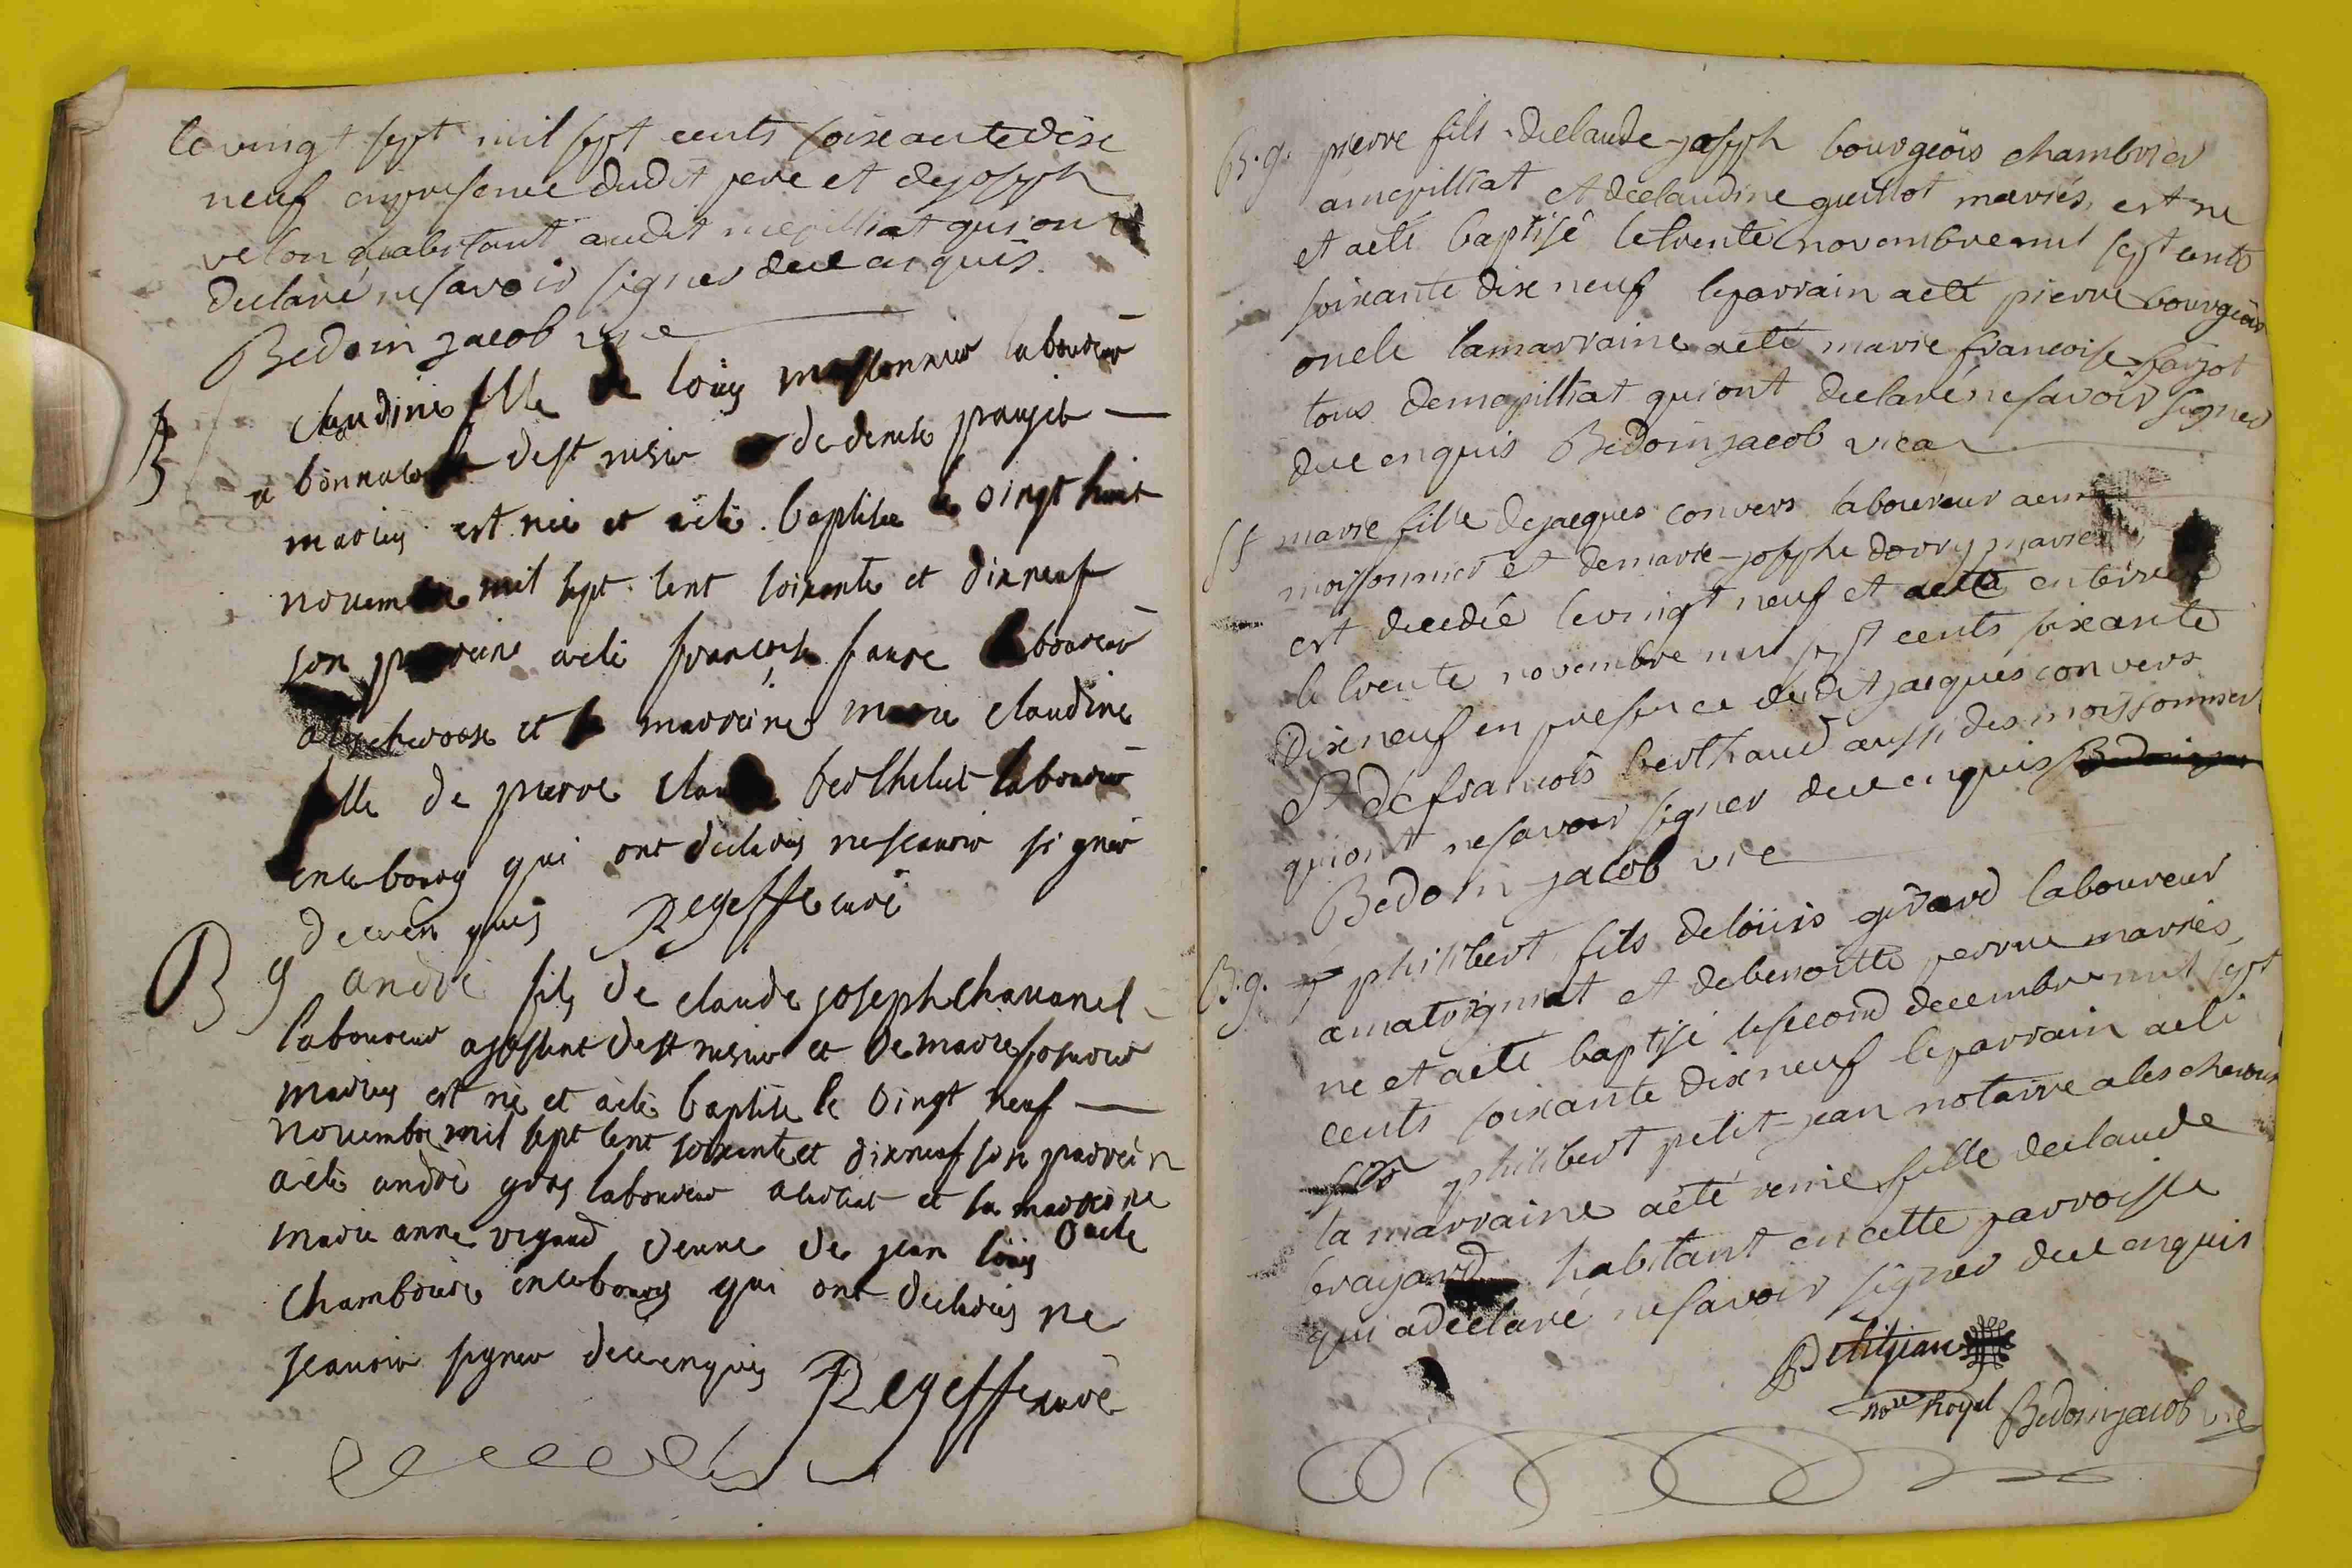 le vingt sept mil sept cents soixante dix
neuf en presence dudit pere et de joseph
velon habitant audit mepilliat qui ont
declaré ne savoir signer de ce enquis
Bedoin jacob vre
B claudine fille de loüis moissonnier laboureur
a bonnaco d'est nisier de denise
maries est née et a été baptisée le vingt huit
novembre mil sept cent soixante et dix neuf
son parrein a été françois faure laboureur
et la marreine marie claudine
fille de pierre claude berthelet laboureur
en ce bourg qui ont declarés ne scavoir signer
de ce enquis Regeffe curé
B g andré fils de claude joseph chavanel
laboureur d'est nisier et de marie
maries est né et a été baptisé le vingt neuf
novembre mil sept cent soixante et dix neuf son parrein
a été andré gros laboureur et la marreine
marie anne rigaud veuve de jean loüis
en ce bourg qui ont declarés ne
scavoir signer de ce enquis Regeffe curé
B.g. pierre fils de claude-joseph bourgeois chambrier
a mepilliat et de claudine guillot mariés, est né
et a eté baptisé le trente novembre mil sept cents
soixante dix neuf le parrain a eté pierre bourgeois
oncle la marraine a eté marie francoise farjot
tous de mepilliat qui ont declaré ne savoir signer
de ce enquis Bedoin jacob vica
marie fille de jacques convers laboureur aux
moissonnier et de marie-josephe dorry mariés
est decedée le vingt neuf et a eté enterrée
le trente novembre mil sept cents soixante
dix neuf en presence dudit jacques convers
et de francois berthaud aussi des moissonnier
qui ont ne savoir signer de ce enquis
Bedoin jacob vre
B.g. philibert fils de loüis girard laboureur
a matrignat et de benoitte perrue marriés,
né et a eté baptisé le second decembre mil sept
cents soixante dix neuf le parrain a eté
philibert petit-jean notaire a les cheroux
la marraine a eté renie fille de claude
brayard habitant en cette parroisse
qui a declaré ne savoir signer de ce enquis
Petitjean
nore Royal Bedoin jacob vre